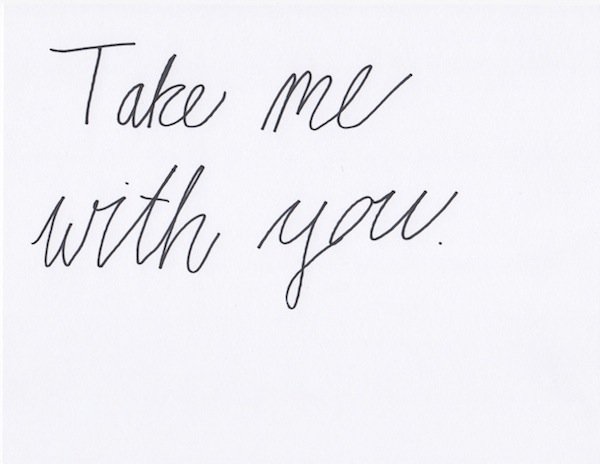 Take me
with you.